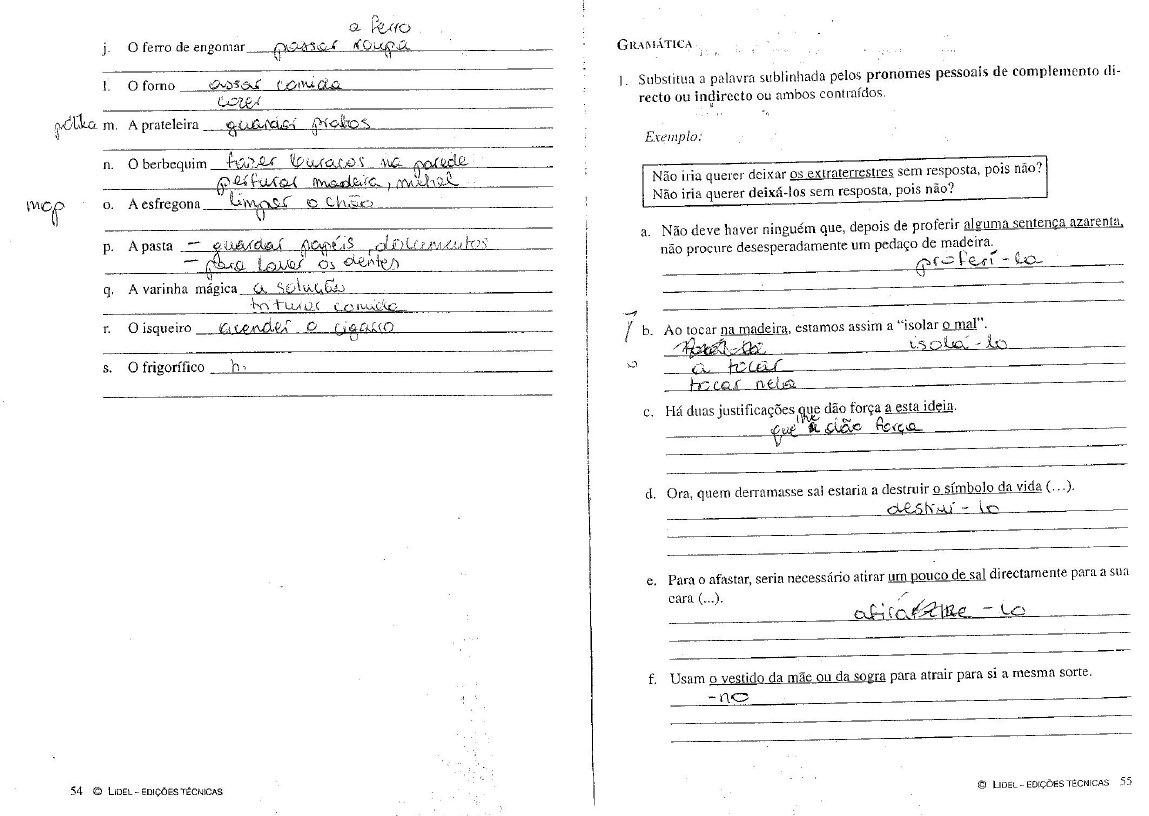 a ferro
j. O ferro de engomar passar roupa
l. O forno assar comida
cozer
półka m. A prateleira guardar pratos
n. O berbequim fazer buracos na parede
perfurar madeira,
mop o. A esfregona limpar o chão
p. A pasta – guardar papéis, documentos
– para lavar os dentes
q. A varinha mágica a solução
triturar comida
r. O isqueiro acender o cigarro
s. O frigorífico
54 © LIDEL – EDIÇÕES TÉCNICAS
GRAMÁTICA
1. Substitua a palavra sublinhada pelos pronomes pessoais de complemento di-
recto ou indirecto ou ambos contraídos.
Exemplo:
Não iria querer deixar os extraterrestres sem resposta, pois não?
Não iria querer deixá-los sem resposta, pois não?
a. Não deve haver ninguém que, depois de proferir alguma sentença azarenta,
não procure desesperadamente um pedaço de madeira.
proferi-la
b. Ao tocar na madeira, estamos assim a “isolar o mal”.
isolá-lo
a tocar
tocar nela
c. Há duas justificações que dão força a esta ideia.
que lhe dão força
d. Ora, quem derramasse sal estaria a destruir o símbolo da vida (…).
destruí-lo
e. Para o afastar, seria necessário atirar um pouco de sal directamente para a sua
cara (...).
-lo
f. Usam o vestido da mãe ou da sogra para atrair para si a mesma sorte.
-no
© LIDEL – EDIÇÕES TÉCNICAS 55